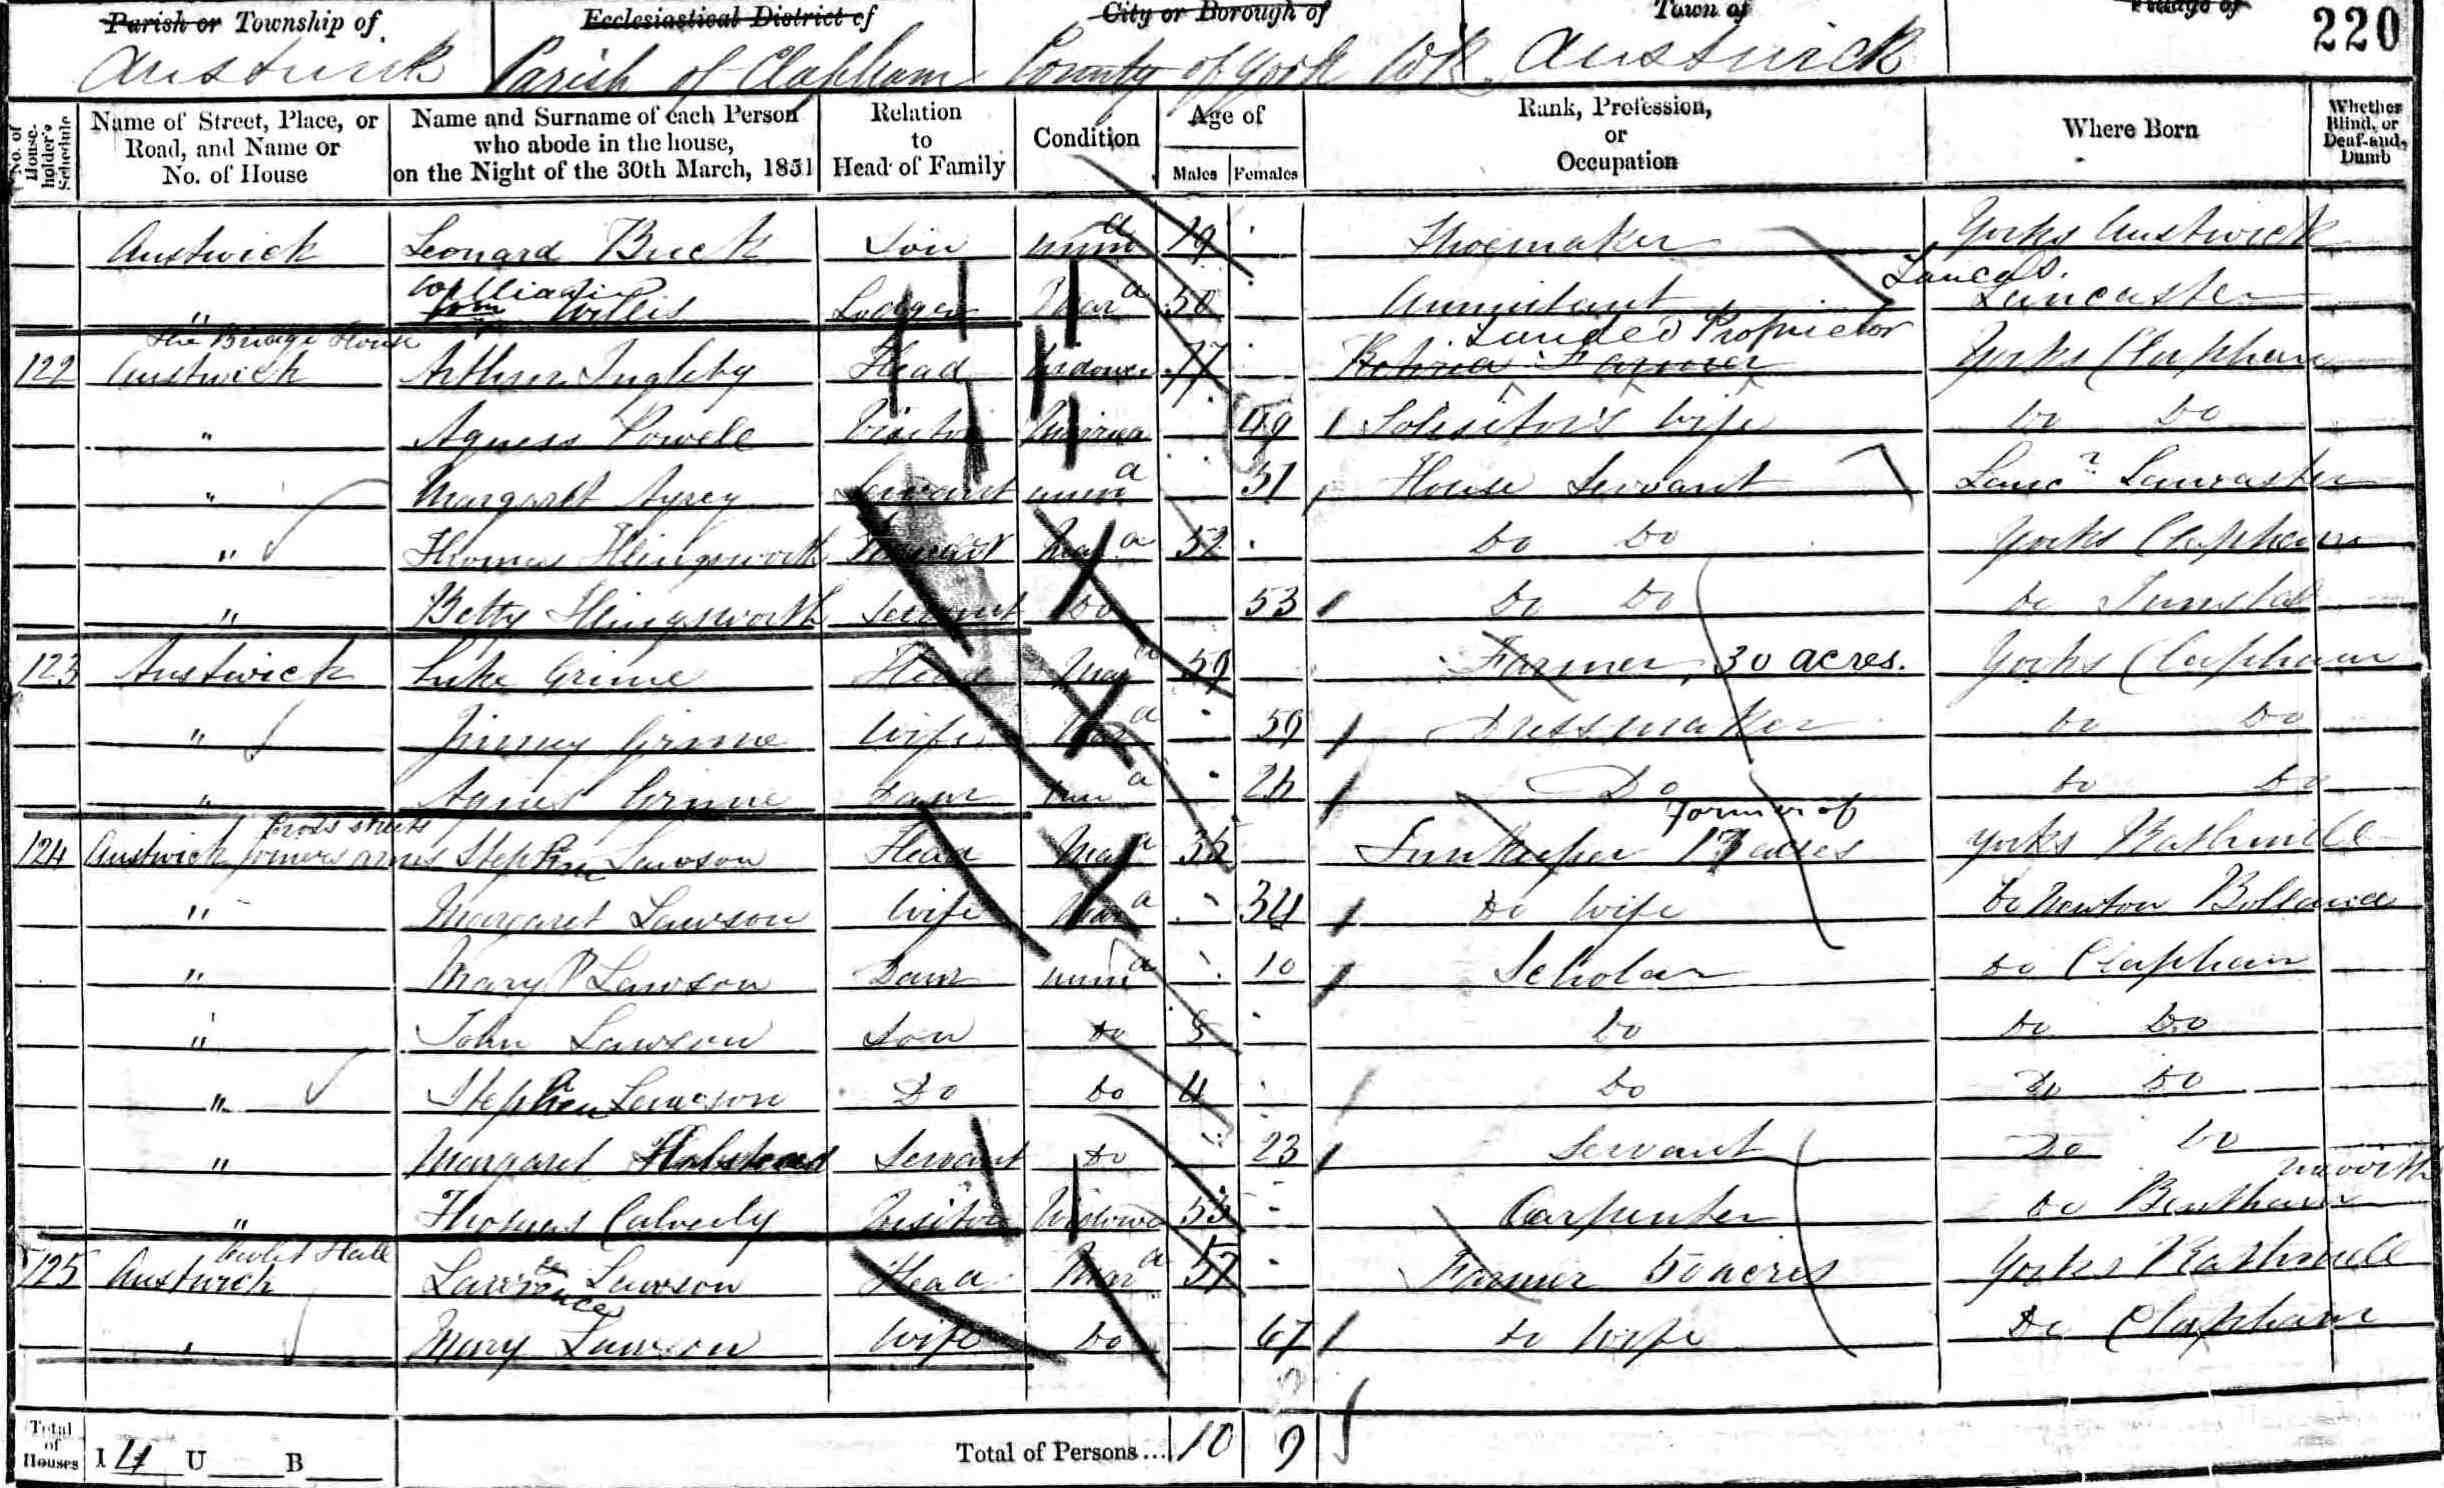 Parish or Township of Ecclesiastical District of City or Borough of Town of Village of 220
Austwick Parish of Clapham County of York Austwick
No. of House-holder's Schedule
Name of Street, Place, or Road, and Name or No. of House
Name and Surname of each Person who abode in the house, on the Night of the 30th March, 1851
Relation to Head of Family
Condition
Age of
Males Females
Rank, Profession, or Occupation
Where Born
Whether Blind, or Deaf-and-Dumb
Austwick Leonard Buck Son Unm 19 Shoemaker Yorks Austwick
" William Willis Lodger Mar 50 Annuitant Lancas. Lancaster
The Bridge House Landed Proprietor
122 Austwick Arthur Ingleby Head Widower 77 Retired Farmer Yorks Clapham
" Agness Powell Visitor Married 49 Solisitor's Wife Do Do
" Margaret Ayrey Servant Unm 31 House Servant Lancr Lancaster
" Thomas Servant Mar 52 Do Do Yorks Clapham
" Betty Servant Do 53 Do Do Do Tunstal
123 Austwick Luke Grime Head Mar 59 Farmer, 30 acres. Yorks Clapham
" Jinney Grime Wife Mar 59 Dressmaker Do Do
" Agnes Grime Daur Unm Do Do Do
Cross Streets Farmer of
124 Austwick Joiners Arms Stephen Lawson Head Mar Innkeeper 17 acres Yorks Rathmell
" Margaret Lawson Wife Mar 34 Do Wife Do Newton Bolland
" Mary P Lawson Daur Unm 10 Scholar Do Clapham
" John Lawson Son Do Do Do Do
" Stephen Lawson Do Do 4 Do Do Do
" Margaret Halstead Servant Do 23 Servant Do Do
" Thomas Calverly Visitor Widower 53 Carpenter Do Bentham
125 Austwick Hall Lawrence Lawson Head Mar 57 Farmer 50 acres Yorks Rathmell
" Mary Lawson Wife Do 67 Do Wife Do Clapham
Total of Houses I 4 U B Total of Persons... 10 9